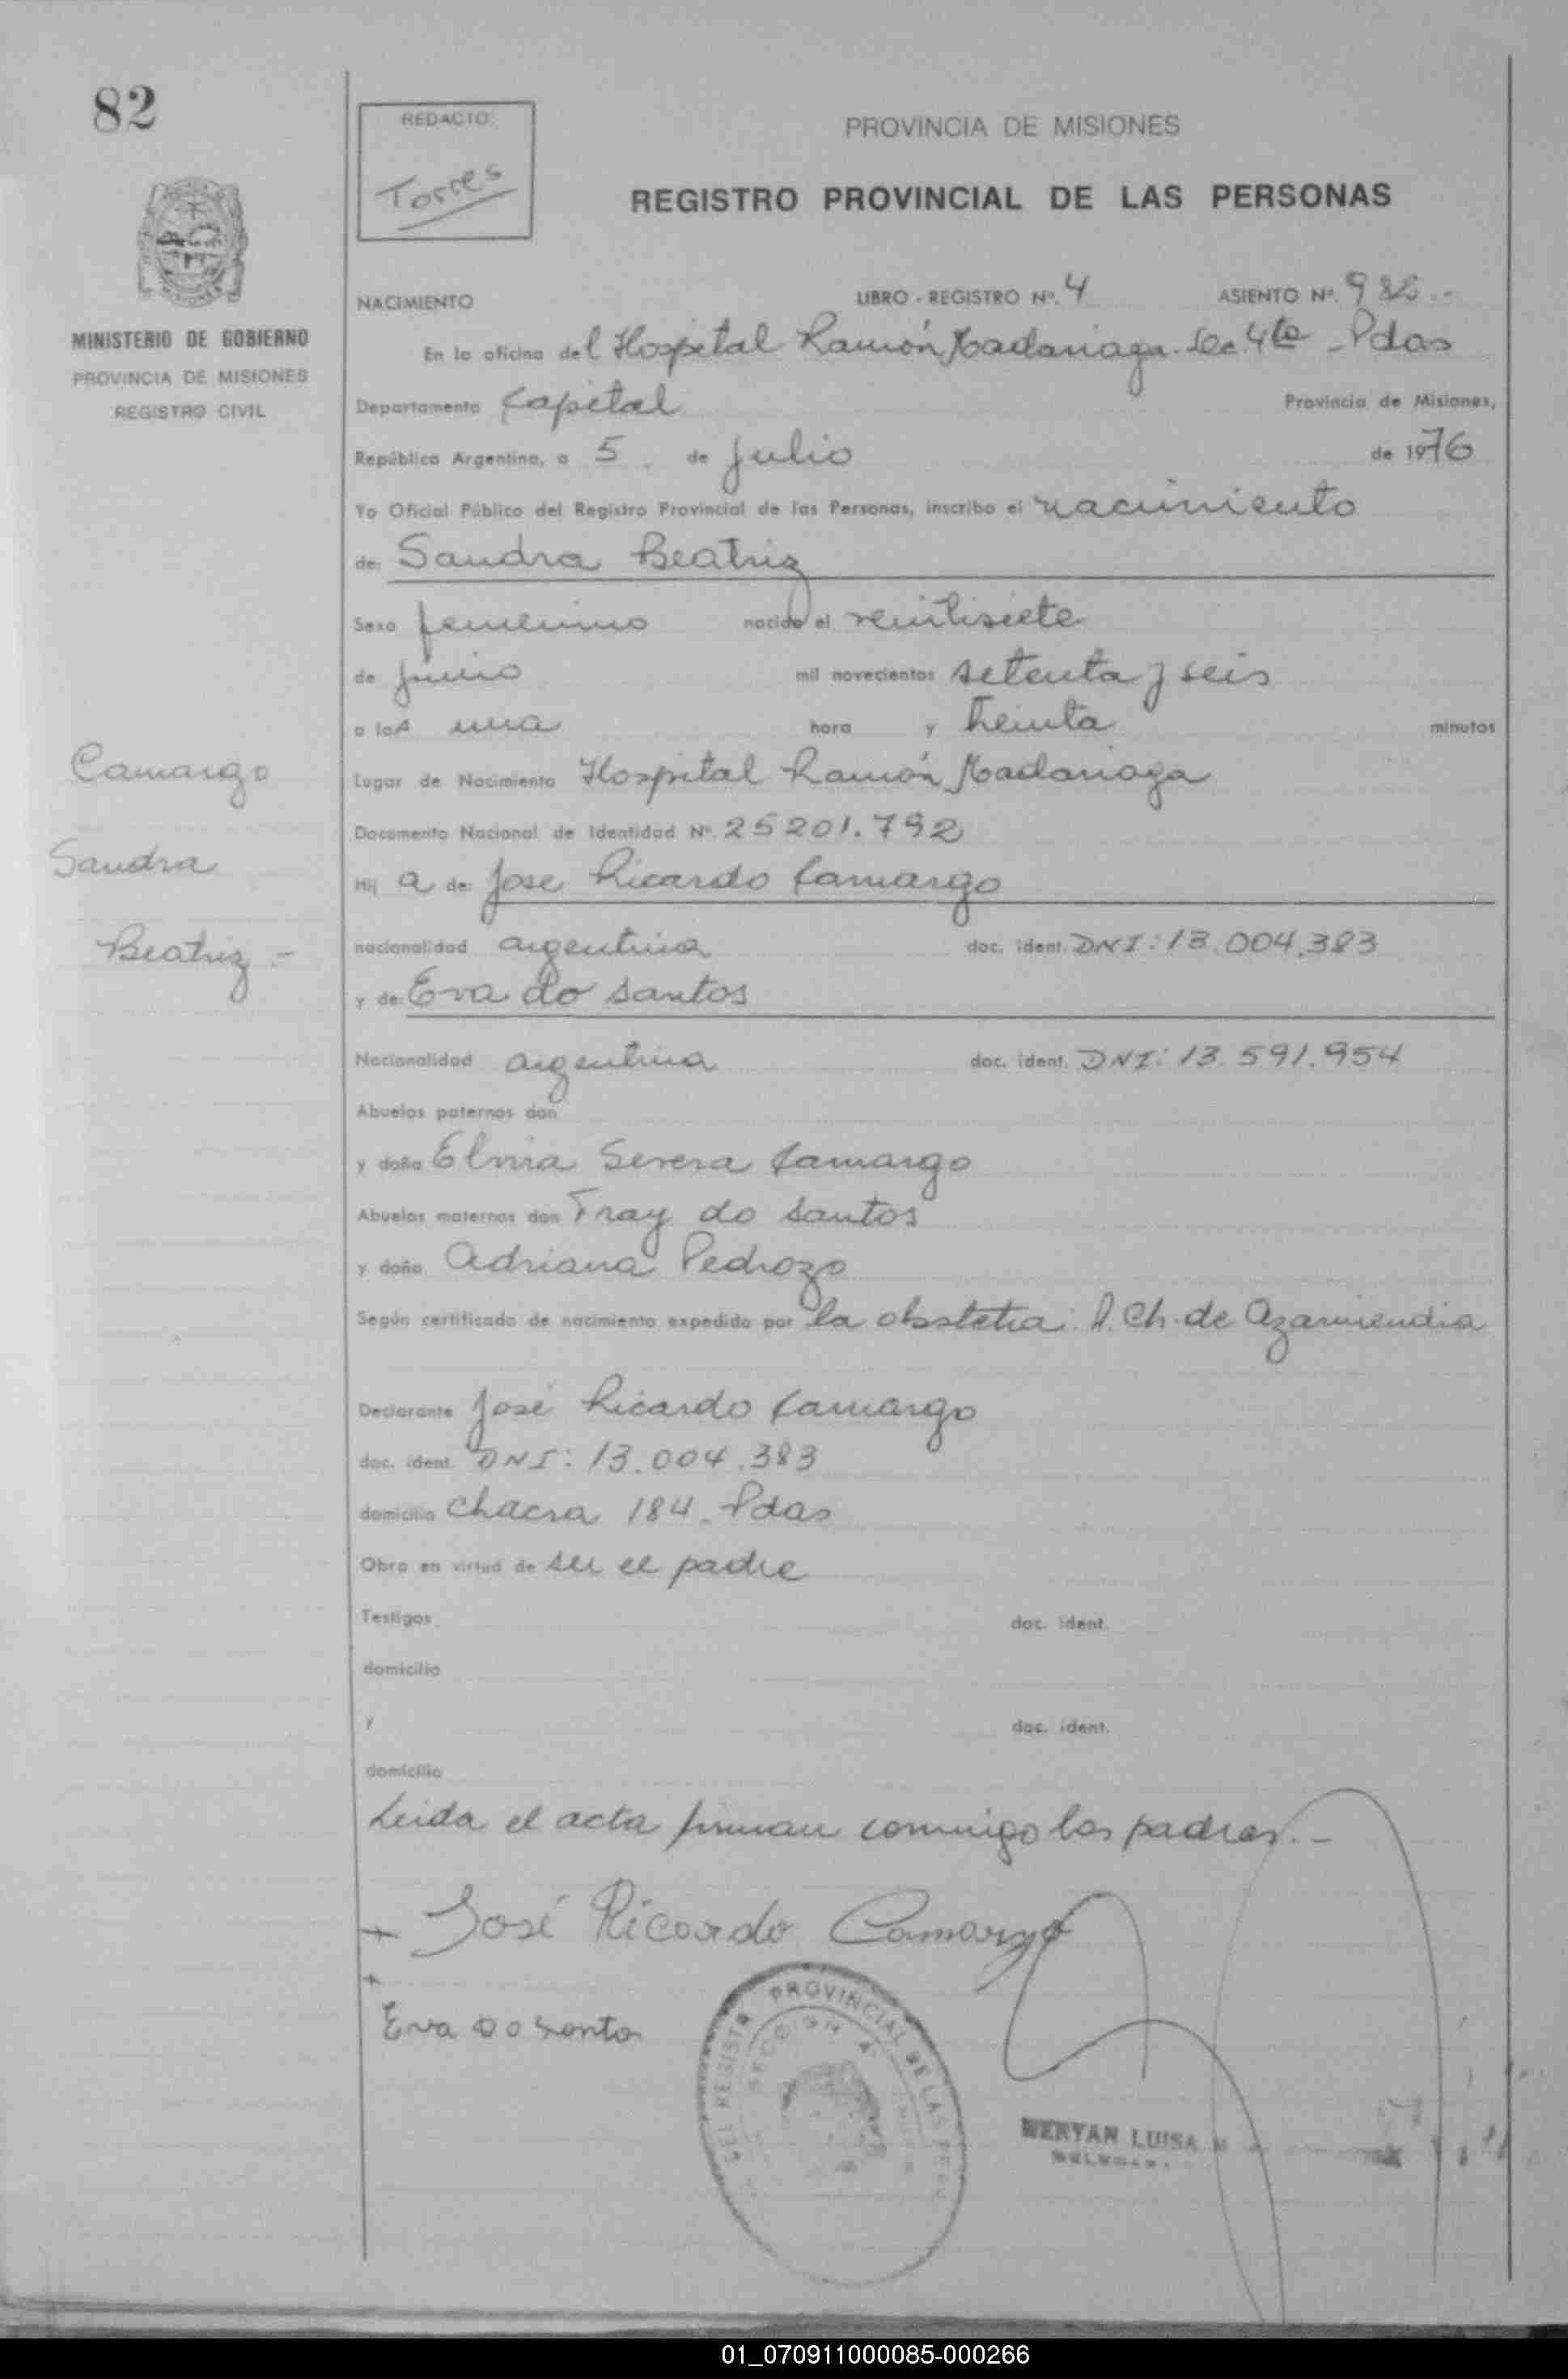 82
REDACTO:
Torres
PROVINCIA DE MISIONES
REGISTRO PROVINCIAL DE LAS PERSONAS
MINISTERIO DE GOBIERNO
PROVINCIA DE MISIONES
REGISTRO CIVIL
NACIMIENTO LIBRO - REGISTRO Nº. 4 ASIENTO Nº.
En la oficina del Hospital Ramón Madariaga. Sec. 4ta - Pdas
Departamento Capital Provincia de Misiones,
República Argentina, a 5 de Julio de 1976
Yo Oficial Público del Registro Provincial de las Personas, inscribo el nacimiento
de: Sandra Beatriz
Sexo femenino nacido el veintisiete
de junio mil novecientos setenta y seis
a las una hora y treinta minutos
Lugar de Nacimiento Hospital Ramón Madariaga
Documento Nacional de Identidad Nº. 25201.792
Hij a de: Jose Ricardo Camargo
nacionalidad argentina doc. ident. DNI: 13.004.383
y de: Eva do santos
Nacionalidad argentina doc. ident. DNI: 13.591.954
Abuelos paternos don
y doña Elvira Severa Camargo
Abuelos maternos don Fray do santos
y doña Adriana Pedrozo
Según certificado de nacimiento expedido por la obstetra: A. Ch. de Azarmendia
Declarante José Ricardo Camargo
doc. ident. DNI: 13.004.383
domicilio Chacra 184. Pdas
Obra en virtud de ser el padre
Testigos doc. ident.
domicilio
y doc. ident.
domicilio
Leida el acta firman conmigo los padres.-
José Ricardo Camargo
Eva do santo
DEL REGISTRO PROVINCIAL DE LAS
SECCION 4
LUISA
Camargo
Sandra
Beatriz -
01_070911000085-000266